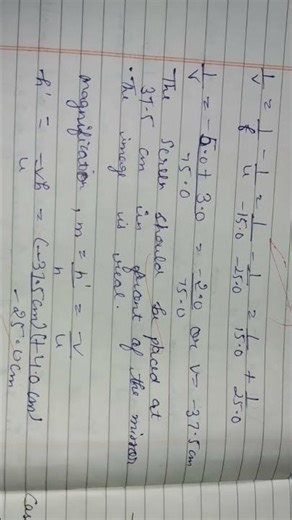 1/v = 1/f - 1/u = 1/-15.0 - 1/-25.0 = 1/15.0 + 1/25.0
1/v = -5.0 + 3.0/75.0 = -2.0/75.0 or v = -37.5 cm
The screen should be placed at
37.5 cm in front of the mirror
. The image is real.
magnification, m = h'/h = -v/u
h' = -vh/u = (-37.5cm)(+4.0cm)/-25.0cm
Cas